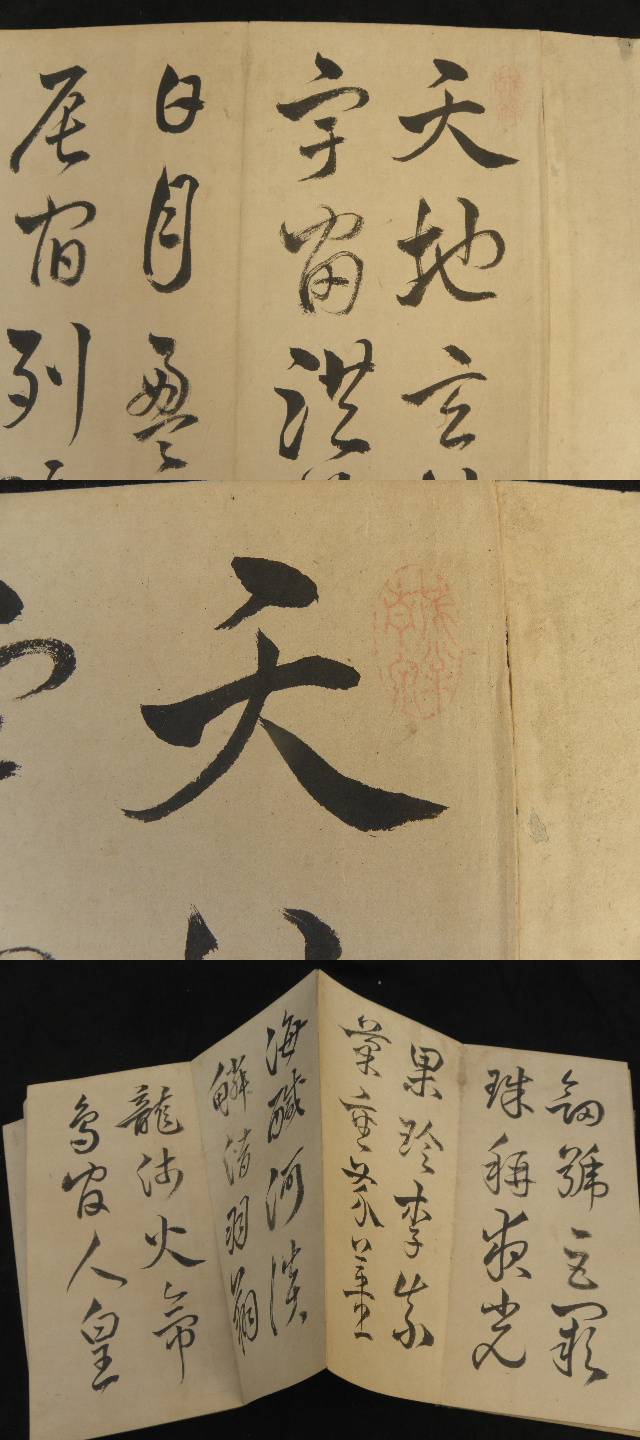 天地玄
宇宙洪
日月盈
辰宿列
天
劔號巨闕
珠稱夜光
果珍李柰
菜重芥薑
海醎河淡
鱗潛羽翔
龍師火帝
鳥官人皇